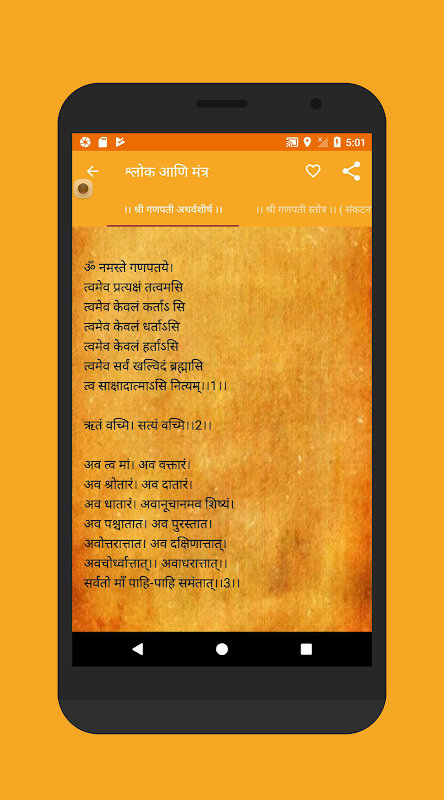 5:01
श्लोक आणि मंत्र
।। श्री गणपती अथर्वशीर्ष ।।
।। श्री गणपती स्तोत्र ।। ( संकटन
ॐ नमस्ते गणपतये।
त्वमेव प्रत्यक्षं तत्वमसि
त्वमेव केवलं कर्ताऽ सि
त्वमेव केवलं धर्ताऽसि
त्वमेव केवलं हर्ताऽसि
त्वमेव सर्वं खल्विदं ब्रह्मासि
त्व साक्षादात्माऽसि नित्यम्।।1।।
ऋतं वच्मि। सत्यं वच्मि।।2।।
अव त्व मां। अव वक्तारं।
अव श्रोतारं। अव दातारं।
अव धातारं। अवानूचानमव शिष्यं।
अव पश्चातात। अव पुरस्तात।
अवोत्तरात्तात। अव दक्षिणात्तात्।
अवचोर्ध्वात्तात्।। अवाधरात्तात्।।
सर्वतो माँ पाहि-पाहि समंतात्।।3।।